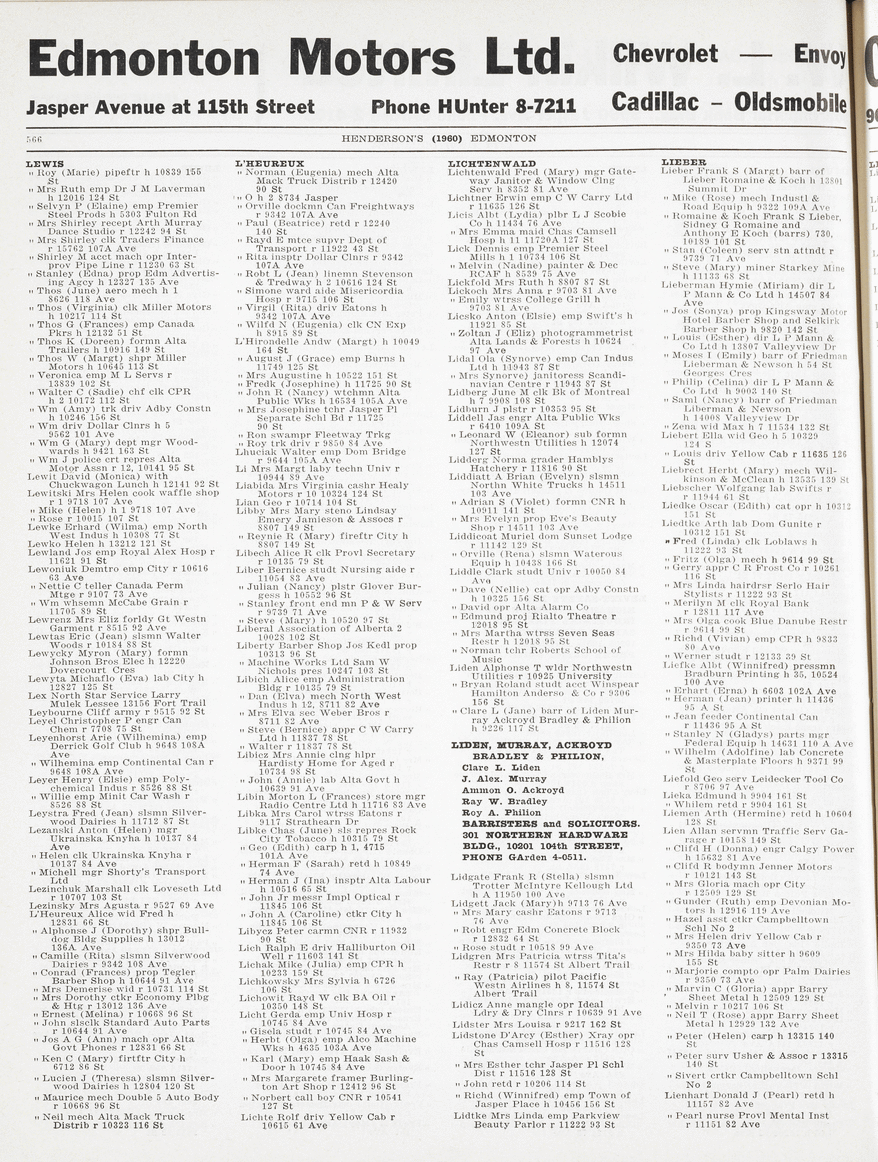 Edmonton Motors Ltd.
Chevrolet — Envoy
Jasper Avenue at 115th Street
Phone HUnter 8-7211
Cadillac – Oldsmobile
566
HENDERSON'S (1960) EDMONTON
LEWIS
" Roy (Marie) pipeftr h 10839 155
St
" Mrs Ruth emp Dr J M Laverman
h 12016 124 St
" Selvyn P (Elaine) emp Premier
Steel Prods h 5303 Fulton Rd
" Mrs Shirley recept Arthur Murray
Dance Studio r 12242 94 St
" Mrs Shirley clk Traders Finance
r 15762 107A Ave
" Shirley M acct mach opr Inter-
prov Pipe Line r 11230 63 St
" Stanley (Edna) prop Edm Advertis-
ing Agcy h 12327 135 Ave
" Thos (June) aero mech h 1
8626 118 Ave
" Thos (Virginia) clk Miller Motors
h 10217 114 St
" Thos G (Frances) emp Canada
Pkrs h 12132 51 St
" Thos K (Doreen) formn Alta
Trailers h 10916 149 St
" Thos W (Margt) shpr Miller
Motors h 10645 113 St
" Veronica emp M L Servs r
13839 102 St
" Walter C (Sadie) chf clk CPR
h 2 10172 112 St
" Wm (Amy) trk driv Adby Constn
h 10246 156 St
" Wm driv Dollar Clnrs h 5
9562 101 Ave
" Wm G (Mary) dept mgr Wood-
wards h 9421 163 St
" Wm J police crt repres Alta
Motor Assn r 12, 10141 95 St
Lewit David (Monica) with
Chuckwagon Lunch h 12141 92 St
Lewitski Mrs Helen cook waffle shop
r 1 9718 107 Ave
" Mike (Helen) h 1 9718 107 Ave
" Rose r 10015 107 St
Lewke Erhard (Wilma) emp North
West Indus h 10308 77 St
Lewko Helen h 13212 121 St
Lewland Jos emp Royal Alex Hosp r
11621 91 St
Lewoniuk Demtro emp City r 10616
63 Ave
" Nettie C teller Canada Perm
Mtge r 9107 73 Ave
" Wm whsemn McCabe Grain r
11705 89 St
Lewrenz Mrs Eliz forldy Gt Westn
Garment r 8515 92 Ave
Lewtas Eric (Jean) slsmn Walter
Woods r 10184 88 St
Lewycky Myron (Mary) fomn
Johnson Bros Elec h 12220
Dovercourt Cres
Lewyta Michaflo (Eva) lab City h
12827 125 St
Lex North Star Service Larry
Mulek Lessee 13156 Fort Trail
Leybourne Cliff army r 9515 92 St
Leyel Christopher P engr Can
Chem r 7708 75 St
Leyenhorst Arie (Wilhemina) emp
Derrick Golf Club h 9648 108A
Ave
" Wilhemina emp Continental Can r
9648 108A Ave
Leyer Henry (Elsie) emp Poly-
chemical Indus r 8526 88 St
" Willie emp Minit Car Wash r
8526 88 St
Leystra Fred (Jean) slsmn Silver-
wood Dairies h 11712 87 St
Lezanski Anton (Helen) mgr
Ukrainska Knyha h 10137 84
Ave
" Helen clk Ukrainska Knyha r
10137 84 Ave
" Michell mgr Shorty's Transport
Ltd
Lezinchuk Marshall clk Loveseth Ltd
r 10707 103 St
Lezinsky Mrs Agusta r 9527 69 Ave
L'Heureux Alice wid Fred h
12831 66 St
" Alphonse J (Dorothy) shpr Bull-
dog Bldg Supplies h 13012
136A Ave
" Camille (Rita) slsmn Silverwood
Dairies r 9342 108 Ave
" Conrad (Frances) prop Tegler
Barber Shop h 10644 91 Ave
" Mrs Demerise wid r 10731 114 St
" Mrs Dorothy ctkr Economy Plbg
& Htg r 13012 136 Ave
" Ernest (Melina) r 10668 96 St
" John slsclk Standard Auto Parts
r 10644 91 Ave
" Jos A G (Ann) mach opr Alta
Govt Phones r 12831 66 St
" Ken C (Mary) firtftr City h
6712 86 St
" Lucien J (Theresa) slsmn Silver-
wood Dairies h 12804 120 St
" Maurice mech Double 5 Auto Body
r 10668 96 St
" Neil mech Alta Mack Truck
Distrib r 10323 116 St
L'HEUREUX
" Norman (Eugenia) mech Alta
Mack Truck Distrib r 12420
90 St
" O h 2 8734 Jasper
" Orville dockmn Can Freightways
r 9342 107A Ave
" Paul (Beatrice) retd r 12240
140 St
" Rayd E mtce supvr Dept of
Transport r 11922 43 St
" Rita insptr Dollar Clnrs r 9342
107A Ave
" Robt L (Jean) linemn Stevenson
& Tredway h 2 10616 124 St
" Simone ward aide Misericordia
Hosp r 9715 106 St
" Virgil (Rita) driv Eatons h
9342 107A Ave
" Wilfd N (Eugenia) clk CN Exp
h 8915 89 St
L'Hirondelle Andw (Margt) h 10049
164 St
" August J (Grace) emp Burns h
11749 125 St
" Mrs Augustine h 10522 151 St
" Fredk (Josephine) h 11725 90 St
" John R (Nancy) wtchmn Alta
Public Wks h 16534 105A Ave
" Mrs Josephine tchr Jasper Pl
Separate Schl Bd r 11725
90 St
" Ron swampr Fleetway Trkg
" Roy trk driv r 9850 84 Ave
Lhuciak Walter emp Dom Bridge
r 9644 105A Ave
Li Mrs Margt laby techn Univ r
10944 89 Ave
Liabida Mrs Virginia cashr Healy
Motors r 10 10324 124 St
Lian Geo r 10714 104 St
Libby Mrs Mary steno Lindsay
Emery Jamieson & Assocs r
8807 149 St
" Reynie R (Mary) fireftr City h
8807 149 St
Libech Alice R clk Provl Secretary
r 10135 79 St
Liber Bernice studt Nursing aide r
11054 83 Ave
" Julian (Nancy) plstr Glover Bur-
gess h 10552 96 St
" Stanley front end mn P & W Serv
r 9739 71 Ave
" Steve (Mary) h 10520 97 St
Liberal Association of Alberta 2
10028 102 St
Liberty Barber Shop Jos Kedl prop
10313 96 St
" Machine Works Ltd Sam W
Nichols pres 10247 103 St
Libich Alice emp Administration
Bldg r 10135 79 St
" Dan (Elva) mech North West
Indus h 12, 8711 82 Ave
" Mrs Elva sec Weber Bros r
8711 82 Ave
" Steve (Bernice) appr C W Carry
Ltd h 11837 78 St
" Walter r 11837 78 St
Libicz Mrs Annie clng hlpr
Hardisty Home for Aged r
10734 98 St
" John (Annie) lab Alta Govt h
10639 91 Ave
Libin Morton L (Frances) store mgr
Radio Centre Ltd h 11716 83 Ave
Libka Mrs Carol wtrss Eatons r
9117 Strathearn Dr
Libke Chas (June) sls repres Rock
City Tobacco h 10315 79 St
" Geo (Edith) carp h 1, 4715
101A Ave
" Herman F (Sarah) retd h 10849
74 Ave
" Herman J (Ina) insptr Alta Labour
h 10516 65 St
" John Jr messr Impl Optical r
11845 106 St
" John A (Caroline) ctkr City h
11845 106 St
Libycz Peter carmn CNR r 11932
90 St
Lich Ralph E driv Halliburton Oil
Well r 11603 141 St
Lichak Mike (Julia) emp CPR h
10233 159 St
Lichkowsky Mrs Sylvia h 6726
106 St
Lichowit Rayd W clk BA Oil r
10350 148 St
Licht Gerda emp Univ Hosp r
10745 84 Ave
" Gisela studt r 10745 84 Ave
" Herbt (Olga) emp Alco Machine
Wks h 4635 103A Ave
" Karl (Mary) emp Haak Sash &
Door h 10745 84 Ave
" Mrs Margarete framer Burling-
ton Art Shop r 12412 96 St
" Norbert call boy CNR r 10541
127 St
Lichte Rolf driv Yellow Cab r
10615 61 Ave
LICHTENWALD
Lichtenwald Fred (Mary) mgr Gate-
way Janitor & Window Clng
Serv h 8352 81 Ave
Lichtner Erwin emp C W Carry Ltd
r 11635 126 St
Licis Albt (Lydia) plbr L J Scobie
Co h 11434 76 Ave
" Mrs Emma maid Chas Camsell
Hosp h 11 11720A 127 St
Lick Dennis emp Premier Steel
Mills h 1 10734 106 St
" Melvin (Nadine) painter & Dec
RCAF h 8539 75 Ave
Lickfold Mrs Ruth h 8807 87 St
Lickoch Mrs Anna r 9703 81 Ave
" Emily wtrss College Grill h
9703 81 Ave
Liesko Anton (Elsie) emp Swift's h
11921 85 St
" Zoltan J (Eliz) photogrammetrist
Alta Lands & Forests h 10624
97 Ave
Lidal Ola (Synorve) emp Can Indus
Ltd h 11943 87 St
" Mrs Synorve) janitoress Scandi-
navian Centre r 11943 87 St
Lidberg June M clk Bk of Montreal
h 7 9908 108 St
Lidburn J plstr r 10353 95 St
Liddell Jas engr Alta Public Wks
r 6410 109A St
" Leonard W (Eleanor) sub formn
Northwestn Utilities h 12074
127 St
Lidderg Norma grader Hamblys
Hatchery r 11816 90 St
Liddiatt A Brian (Evelyn) slsmn
North White Trucks h 14511
103 Ave
" Adrian S (Violet) formn CNR h
10911 141 St
" Mrs Evelyn prop Eve's Beauty
Shop r 14511 103 Ave
Liddicoat Muriel dom Sunset Lodge
r 11142 129 St
" Orville (Rena) slsmn Waterous
Equip h 10438 166 St
Liddle Clark studt Univ r 10050 84
Ave
" Dave (Nellie) cat opr Adby Constn
h 10325 156 St
" David opr Alta Alarm Co
" Edmund proj Rialto Theatre r
12018 95 St
" Mrs Martha wtrss Seven Seas
Restr h 12018 95 St
" Norman tchr Roberts School of
Music
Liden Alphonse T wldr Northwestn
Utilities r 10925 University
" Bryan Roland studt acct Winspear
Hamilton Anderso & Co r 9306
156 St
" Clare L (Jane) barr of Liden Mur-
ray Ackroyd Bradley & Philion
h 9226 117 St
LIDEN, MURRAY, ACKROYD
BRADLEY & PHILION,
Clare L. Liden
J. Alex. Murray
Ammon O. Ackroyd
Ray W. Bradley
Roy A. Philion
BARRISTERS and SOLICITORS.
301 NORTHERN HARDWARE
BLDG., 10201 104th STREET,
PHONE GArden 4-0511.
Lidgate Frank R (Stella) slsmn
Trotter McIntyre Kellough Ltd
h A 11950 100 Ave
Lidgett Jack (Mary)h 9713 76 Ave
" Mrs Mary cashr Eatons r 9713
76 Ave
" Robt engr Edm Concrete Block
r 12832 64 St
" Rose studt r 10518 99 Ave
Lidgren Mrs Patricia wtrss Tita's
Restr r 8 11574 St Albert Trail
" Ray (Patricia) pilot Pacific
Westn Airlines h 8, 11574 St
Albert Trail
Lidicz Anne mangle opr Ideal
Ldry & Dry Clnrs r 10639 91 Ave
Lidster Mrs Louisa r 9217 162 St
Lidstone D'Arcy (Esther) Xray opr
Chas Camsell Hosp r 11516 128
St
" Mrs Esther tchr Jasper Pl Schl
Dist r 11516 128 St
" John retd r 10206 114 St
" Richd (Winnifred) emp Town of
Jasper Place h 10456 156 St
Lidtke Mrs Linda emp Parkview
Beauty Parlor r 11222 93 St
LIEBER
Lieber Frank S (Margt) barr of
Lieber Romaine & Koch h 13801
Summit Dr
" Mike (Rose) mech Industl &
Road Equip h 9322 109A Ave
" Romaine & Koch Frank S Lieber,
Sidney G Romaine and
Anthony E Koch (barrs) 730,
10189 101 St
" Stan (Coleen) serv stn attndt r
9739 71 Ave
" Steve (Mary) miner Starkey Mine
h 11133 68 St
Lieberman Hymie (Miriam) dir L
P Mann & Co Ltd h 14507 84
Ave
" Jos (Sonya) prop Kingsway Motor
Hotel Barber Shop and Selkirk
Barber Shop h 9820 142 St
" Louis (Esther) dir L P Mann &
Co Ltd h 13807 Valleyview Dr
" Moses I (Emily) barr of Friedman
Lieberman & Newson h 54 St
Georges Cres
" Philip (Celina) dir L P Mann &
Co Ltd h 9003 140 St
" Saml (Nancy) barr of Friedman
Liberman & Newson
h 14008 Valleyview Dr
" Zena wid Max h 7 11534 132 St
Liebert Ella wid Geo h 5 10329
124 S
" Louis driv Yellow Cab r 11635 126
St
Liebrect Herbt (Mary) mech Wil-
kinson & McClean h 13535 139 St
Liebscher Wolfgang lab Swifts r
r 11944 61 St
Liedke Oscar (Edith) cat opr h 10312
151 St
Liedtke Arth lab Dom Gunite r
10312 151 St
" Fred (Linda) clk Loblaws h
11222 93 St
" Fritz (Olga) mech h 9614 99 St
" Gerry appr C R Frost Co r 10261
116 St
" Mrs Linda hairdrsr Serlo Hair
Stylists r 11222 93 St
" Merilyn M clk Royal Bank
r 12811 117 Ave
" Mrs Olga cook Blue Danube Restr
r 9614 99 St
" Richd (Vivian) emp CPR h 9833
80 Ave
" Werner studt r 12133 39 St
Liefke Albt (Winnifred) pressmn
Bradburn Printing h 35, 10524
100 Ave
" Erhart (Erna) h 6603 102A Ave
" Herman (Jean) printer h 11436
95 A St
" Jean feeder Continental Can
r 11436 95 A St
" Stanley N (Gladys) parts mgr
Federal Equip h 14631 110 A Ave
" Wilhelm (Adolfine) lab Concrete
& Masterplate Floors h 9371 99
St
Liefold Geo serv Leidecker Tool Co
r 8706 97 Ave
Lieka Edmund h 9904 161 St
" Whilem retd r 9904 161 St
Liemen Arth (Hermine) retd h 10604
128 St
Lien Allan servmn Traffic Serv Ga-
rage r 10158 149 St
" Clifd H (Donna) engr Calgy Power
h 15632 81 Ave
" Clifd R bodymn Jenner Motors
r 10121 143 St
" Mrs Gloria mach opr City
r 12509 129 St
" Gunder (Ruth) emp Devonian Mo-
tors h 12916 119 Ave
" Hazel asst ctkr Campbelltown
Schl No 2
" Mrs Helen driv Yellow Cab r
9350 73 Ave
" Mrs Hilda baby sitter h 9609
155 St
" Marjorie compto opr Palm Dairies
r 9350 73 Ave
" Marvin C (Gloria) appr Barry
Sheet Metal h 12509 129 St
" Melvin r 10217 106 St
" Neil T (Rose) appr Barry Sheet
Metal h 12929 132 Ave
" Peter (Helen) carp h 13315 140
St
" Peter surv Usher & Assoc r 13315
140 St
" Sivert crtkr Campbelltown Schl
No 2
Lienhart Donald J (Pearl) retd h
11157 82 Ave
" Pearl nurse Provl Mental Inst
r 11151 82 Ave